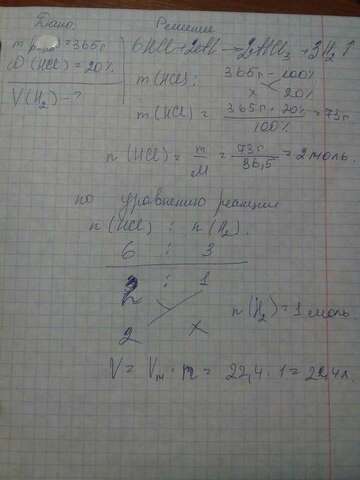 Дано:
Решение
m р-ра = 365г
ω (HCl) = 20%
V(H₂) - ?
6HCl + 2Al → 2AlCl₃ + 3H₂↑
m(HCl):
365г - 100%
x 20%
m(HCl) = 365г · 20% / 100% = 73г
n (HCl) = m / M = 73г / 36,5 = 2 моль.
по уравнению реакции
n(HCl) : n(H₂).
6 : 3
2 : 1
2 x
n(H₂) = 1 моль.
V = Vm · n = 22,4 · 1 = 22,4л.